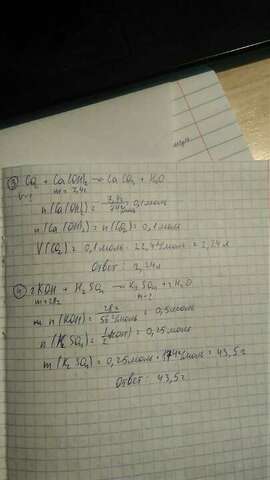 ③ CO₂ + Ca(OH)₂ → CaCO₃ + H₂O
V-? m=7,4г
n(Ca(OH)₂) = 7,4г = 0,1моль
n(Ca(OH)₂) = n(CO₂) = 0,1моль
V(CO₂) = 0,1моль · 22,4 л/моль = 2,24л
Ответ: 2,24л
④ 2KOH + H₂SO₄ → K₂SO₄ + 2H₂O
m=28г m-?
n(KOH) = 28г / 56г/моль = 0,5моль
n(K₂SO₄) = ½ (KOH) = 0,25моль
m(K₂SO₄) = 0,25моль · 174г/моль = 43,5г
Ответ: 43,5г